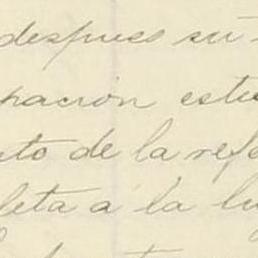 despues su
pación este
to de la refe
leta a la lu